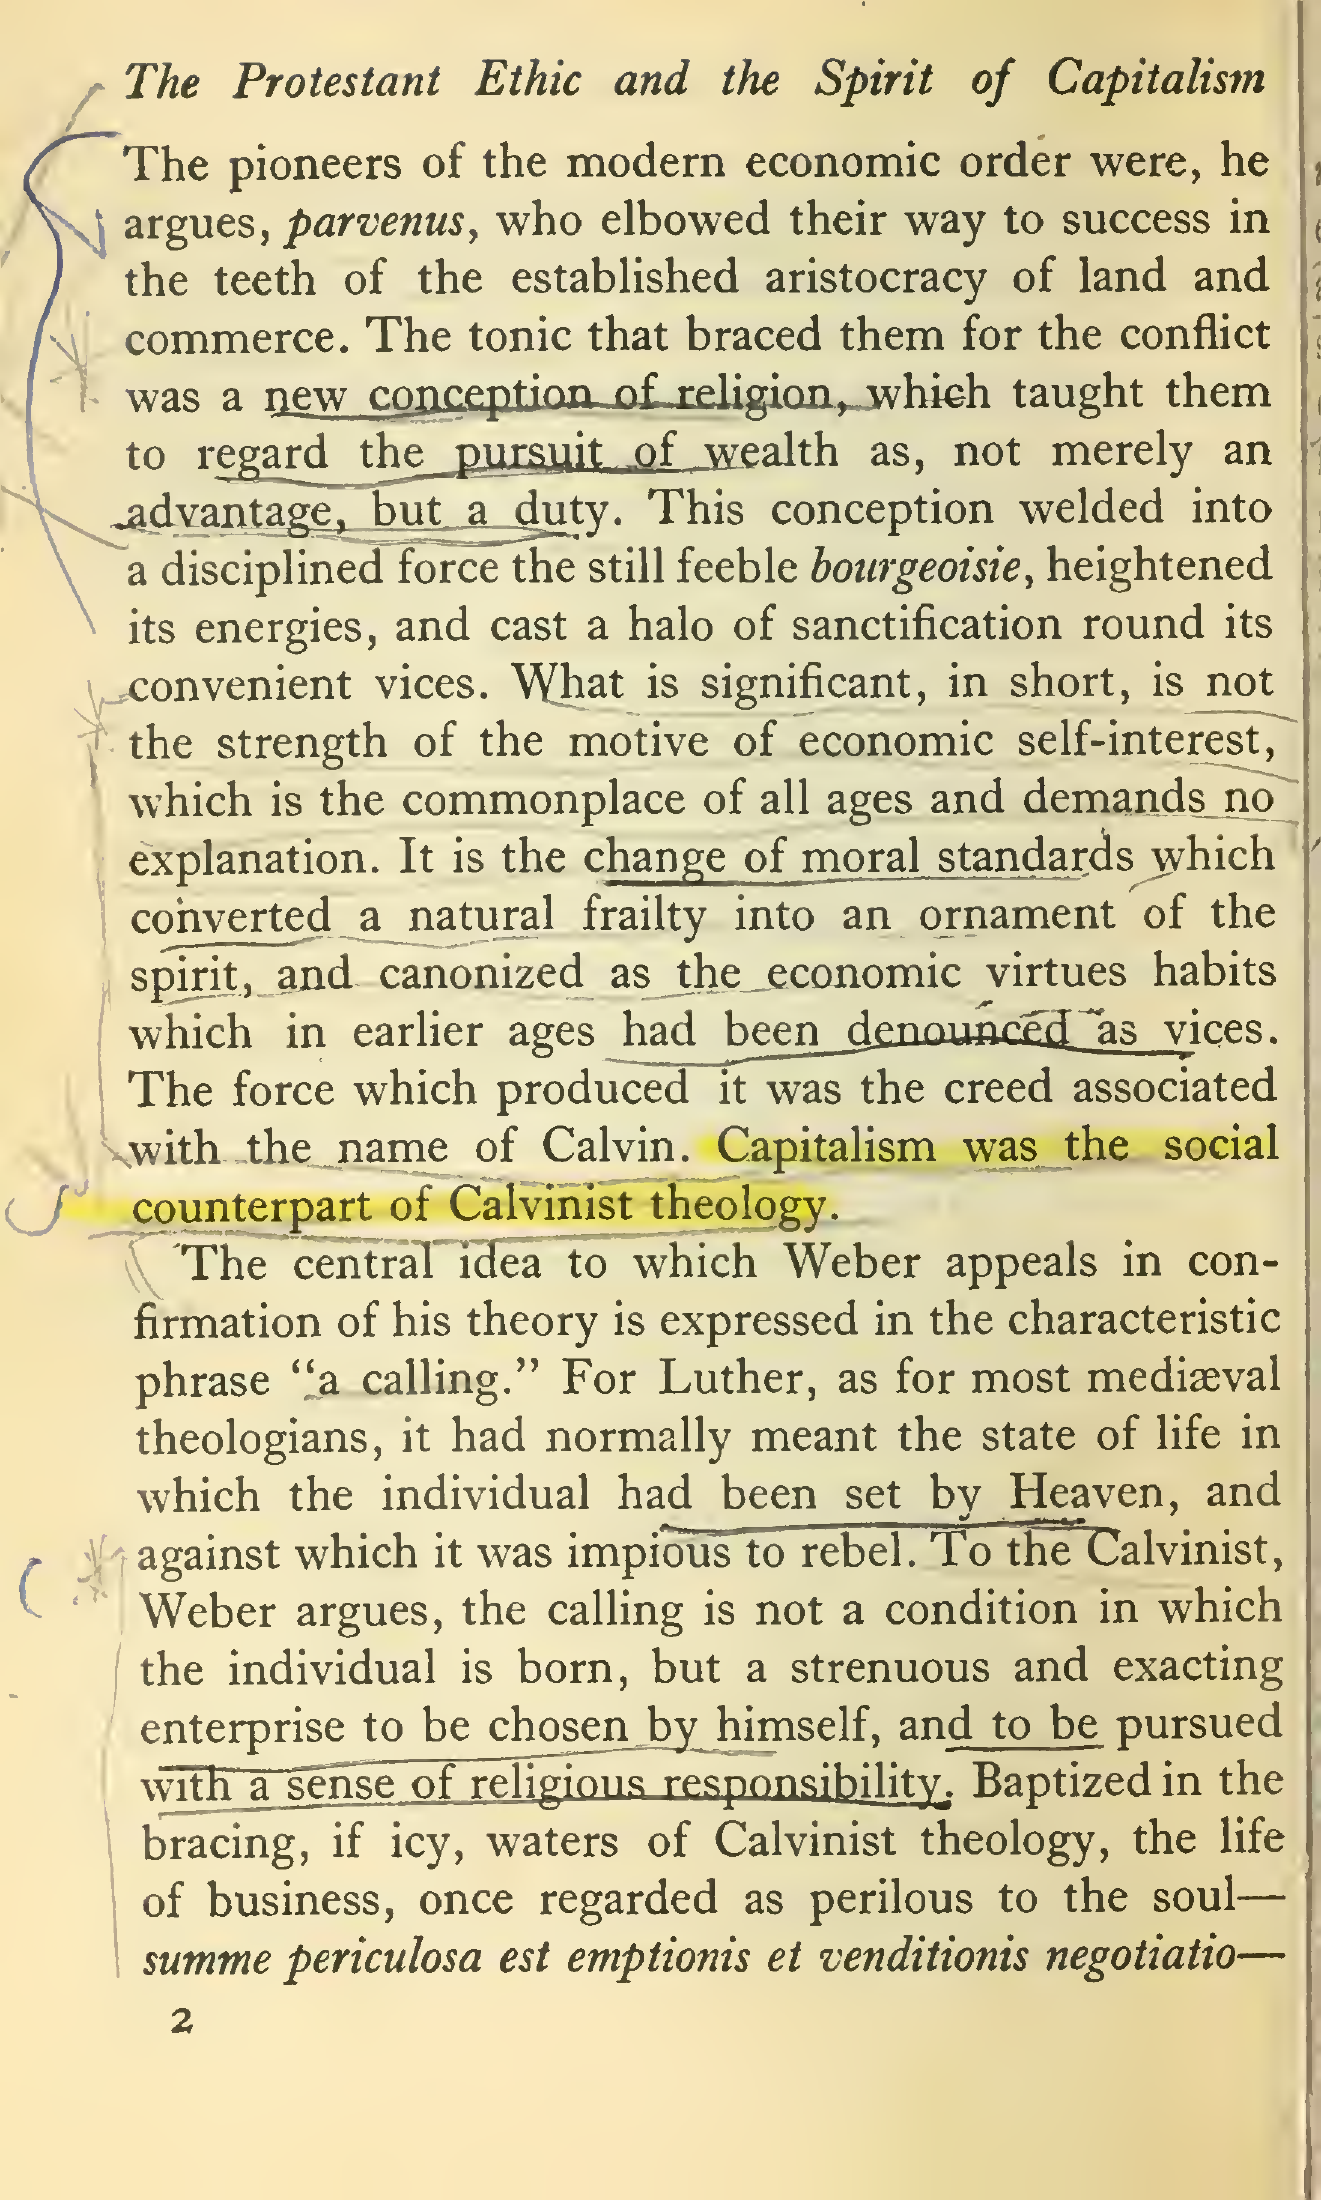 The Protestant Ethic and the Spirit of Capitalism
The pioneers of the modern economic order were, he
argues, parvenus, who elbowed their way to success in
the teeth of the established aristocracy of land and
commerce. The tonic that braced them for the conflict
was a new conception of religion, which taught them
to regard the pursuit of wealth as, not merely an
advantage, but a duty. This conception welded into
a disciplined force the still feeble bourgeoisie, heightened
its energies, and cast a halo of sanctification round its
convenient vices. What is significant, in short, is not
the strength of the motive of economic self-interest,
which is the commonplace of all ages and demands no
explanation. It is the change of moral standards which
converted a natural frailty into an ornament of the
spirit, and canonized as the economic virtues habits
which in earlier ages had been denounced as vices.
The force which produced it was the creed associated
with the name of Calvin. Capitalism was the social
counterpart of Calvinist theology.
The central idea to which Weber appeals in con-
firmation of his theory is expressed in the characteristic
phrase “a calling.” For Luther, as for most mediæval
theologians, it had normally meant the state of life in
which the individual had been set by Heaven, and
against which it was impious to rebel. To the Calvinist,
Weber argues, the calling is not a condition in which
the individual is born, but a strenuous and exacting
enterprise to be chosen by himself, and to be pursued
with a sense of religious responsibility. Baptized in the
bracing, if icy, waters of Calvinist theology, the life
of business, once regarded as perilous to the soul—
summe periculosa est emptionis et venditionis negotiatio—
2